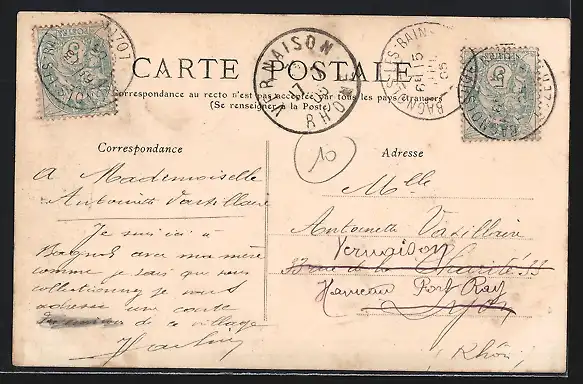 CARTE POSTALE
Correspondance au recto n'est pas acceptée par tous les pays étrangers
(Se renseigner à la Poste)
VERNAISON
RHONE
BAGNOLS-LES-BAINS
6E 15
05
10
Correspondance
Adresse
A Mademoiselle
Antoinette Vatillaire
Je suis ici à
Bagnols avec ma mère
comme je sais que vous
collectionnez je vous
adresse une carte
de ce village
Mlle
Antoinette Vatillaire
Vernaison
33 rue de la Charité 33
Hameau Port Ray
Lyon
(Rhône)